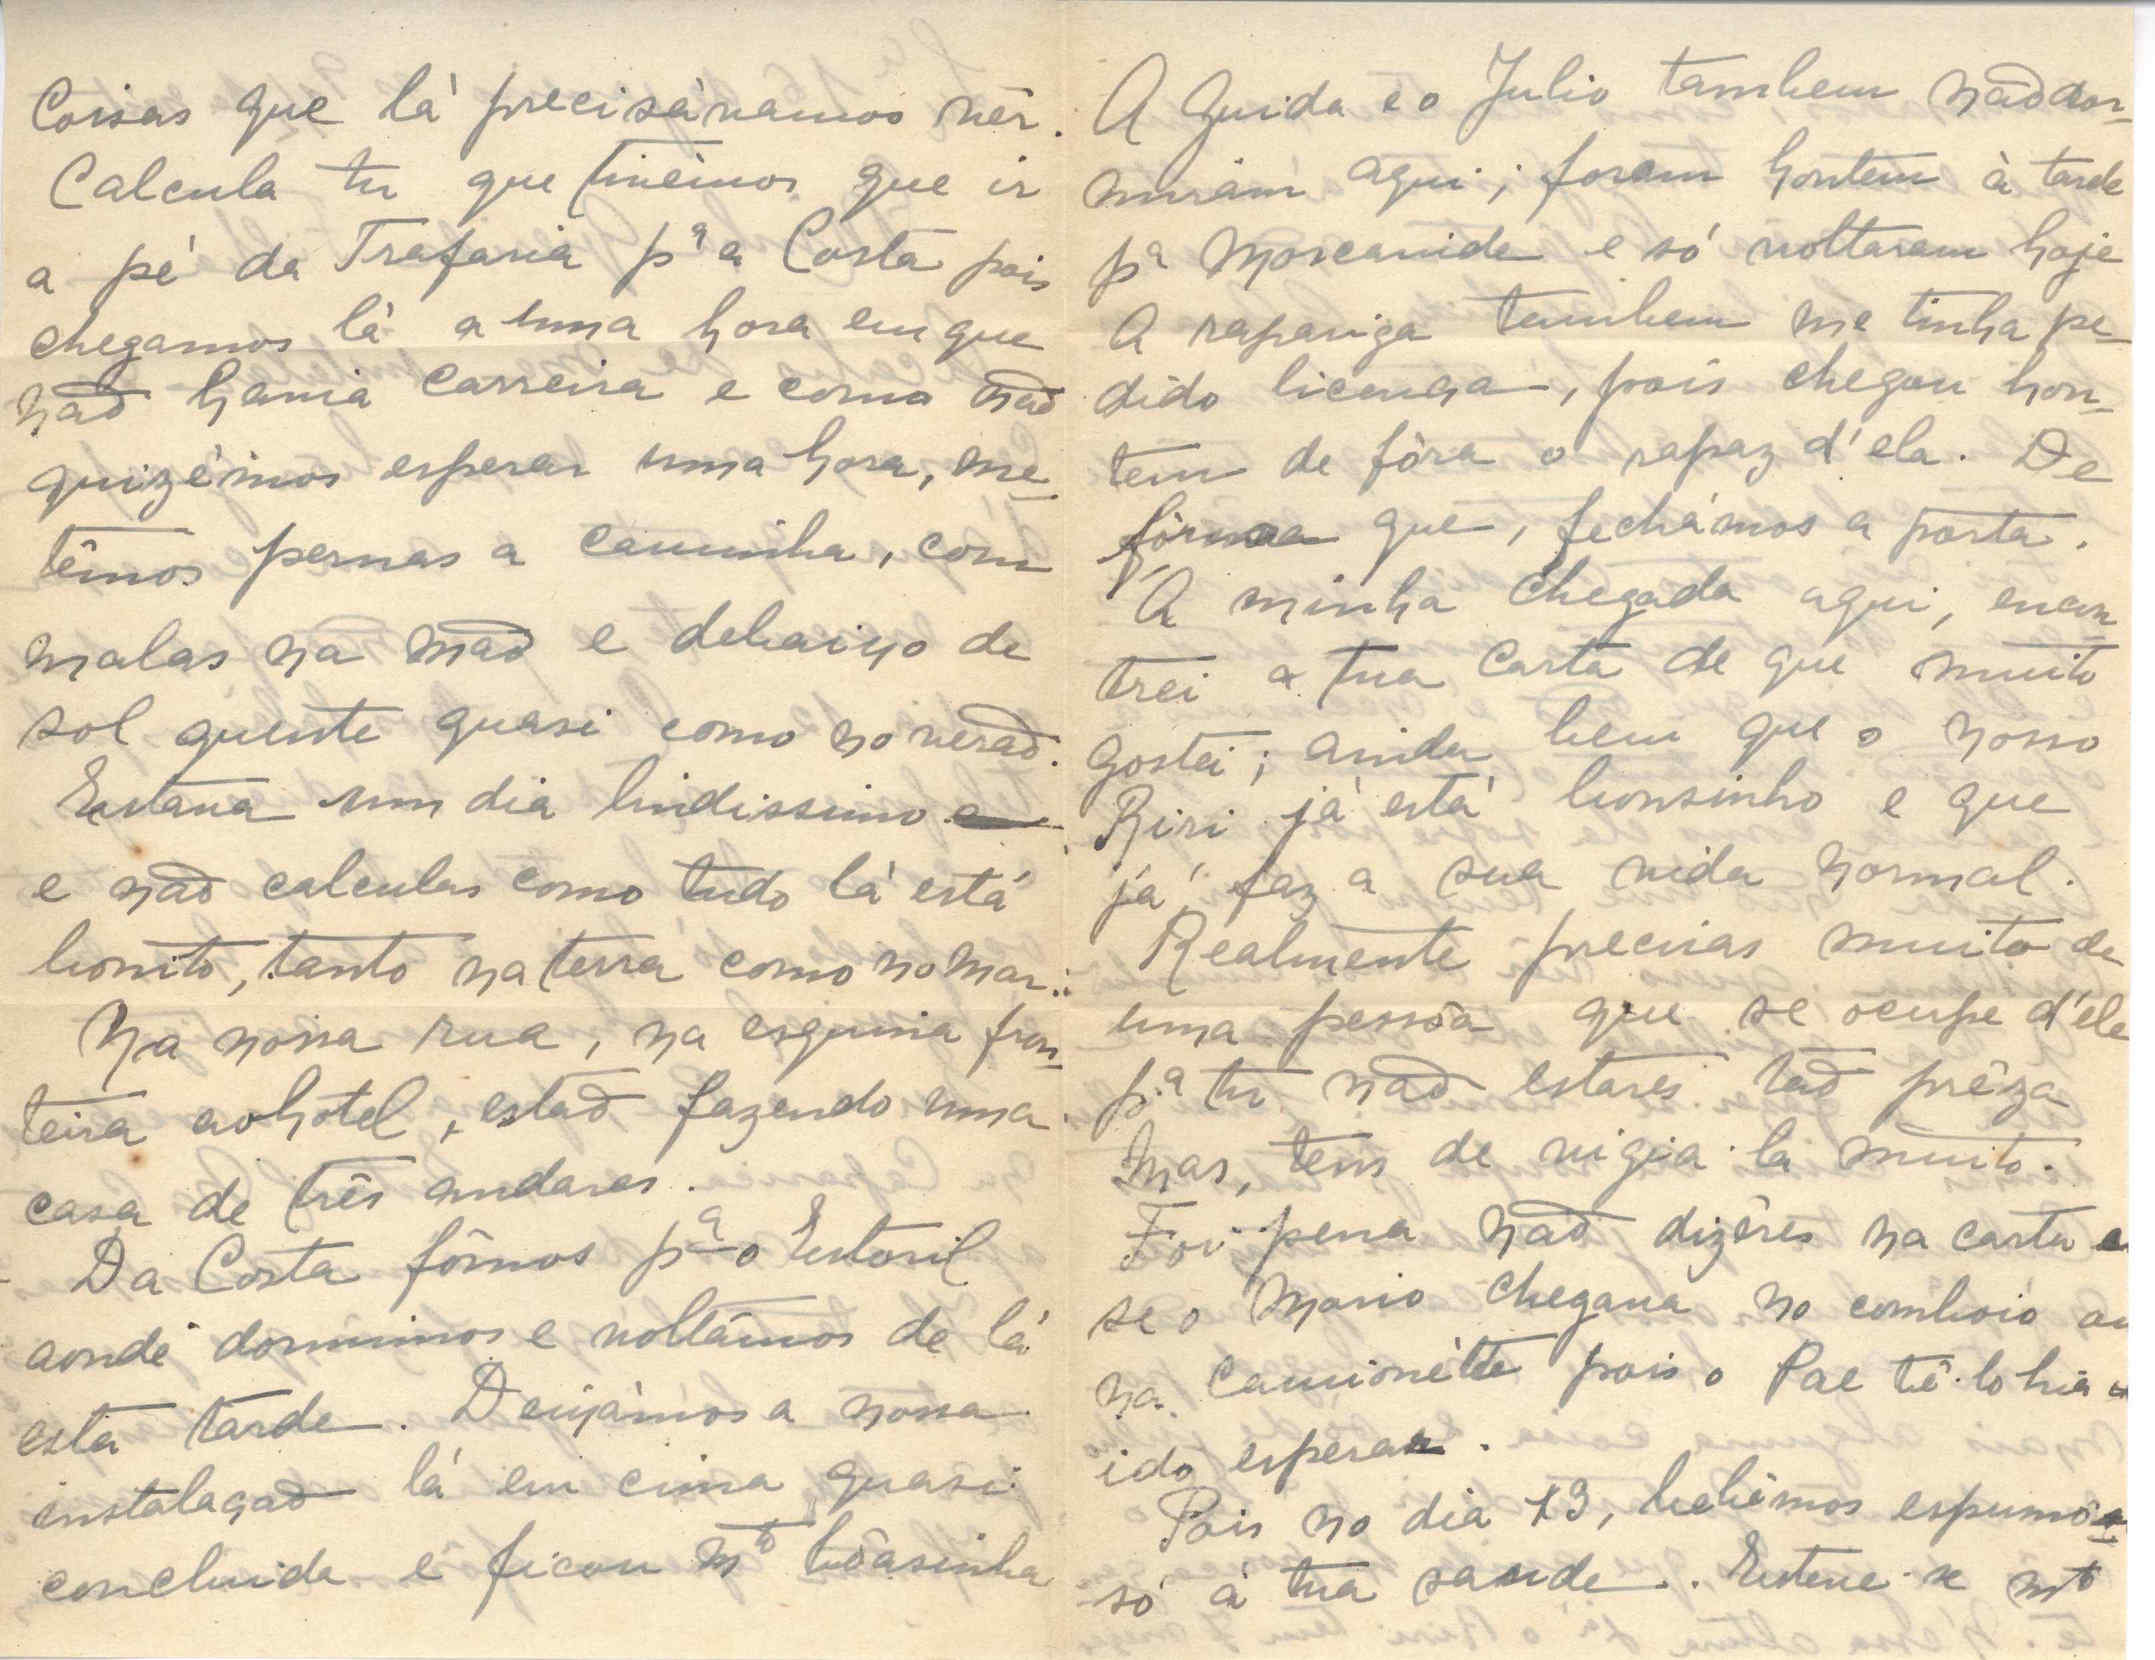 Coisas que lá precisávamos vêr.
Calcula tu que tivémos que ir
a pé da Trafaria pª a Costa pois
chegamos lá a uma hora em que
não havia carreira e como não
quizémos esperar uma hora, me-
têmos pernas a caminho, com
malas na mão e debaixo de
sol quente quasi como no verão.
Estava um dia lindissimo
e não calculas como tudo lá está
bonito, tanto na terra como no mar..
Na nossa rua, na esquina fron-
teira ao hotel, estão fazendo uma
casa de três andares.
Da Costa fômos pª o Estoril
aonde dormimos e voltámos de lá
esta tarde. Deixámos a nossa
instalação lá em cima quasi
concluida e ficou mto bôasinha
A Guida e o Julio tambem não dor-
miram aqui; foram hontem à tarde
pª Moscavide e só voltaram hoje
A rapariga tambem me tinha pe-
dido licença, pois chegou hon-
tem de fóra o rapaz d'ela. De
fórma que, fechámos a porta.
A minha chegada aqui, encon-
trei a tua carta de que muito
gostei; ainda bem que o nosso
Riri já está bonsinho e que
já faz a sua vida normal.
Realmente precisas muito de
uma pessôa que se ocupe d'ele
pª tu não estares tão prêza
Mas, tens de vigia-la muito.
Foi pena não dizêres na carta
se o Mario chegava no comboio ou
na camionétte pois o Pae tê-lo hia
ido esperar.
Pois no dia 13, bebêmos espumo-
só á tua saude.. Esteve-se mto